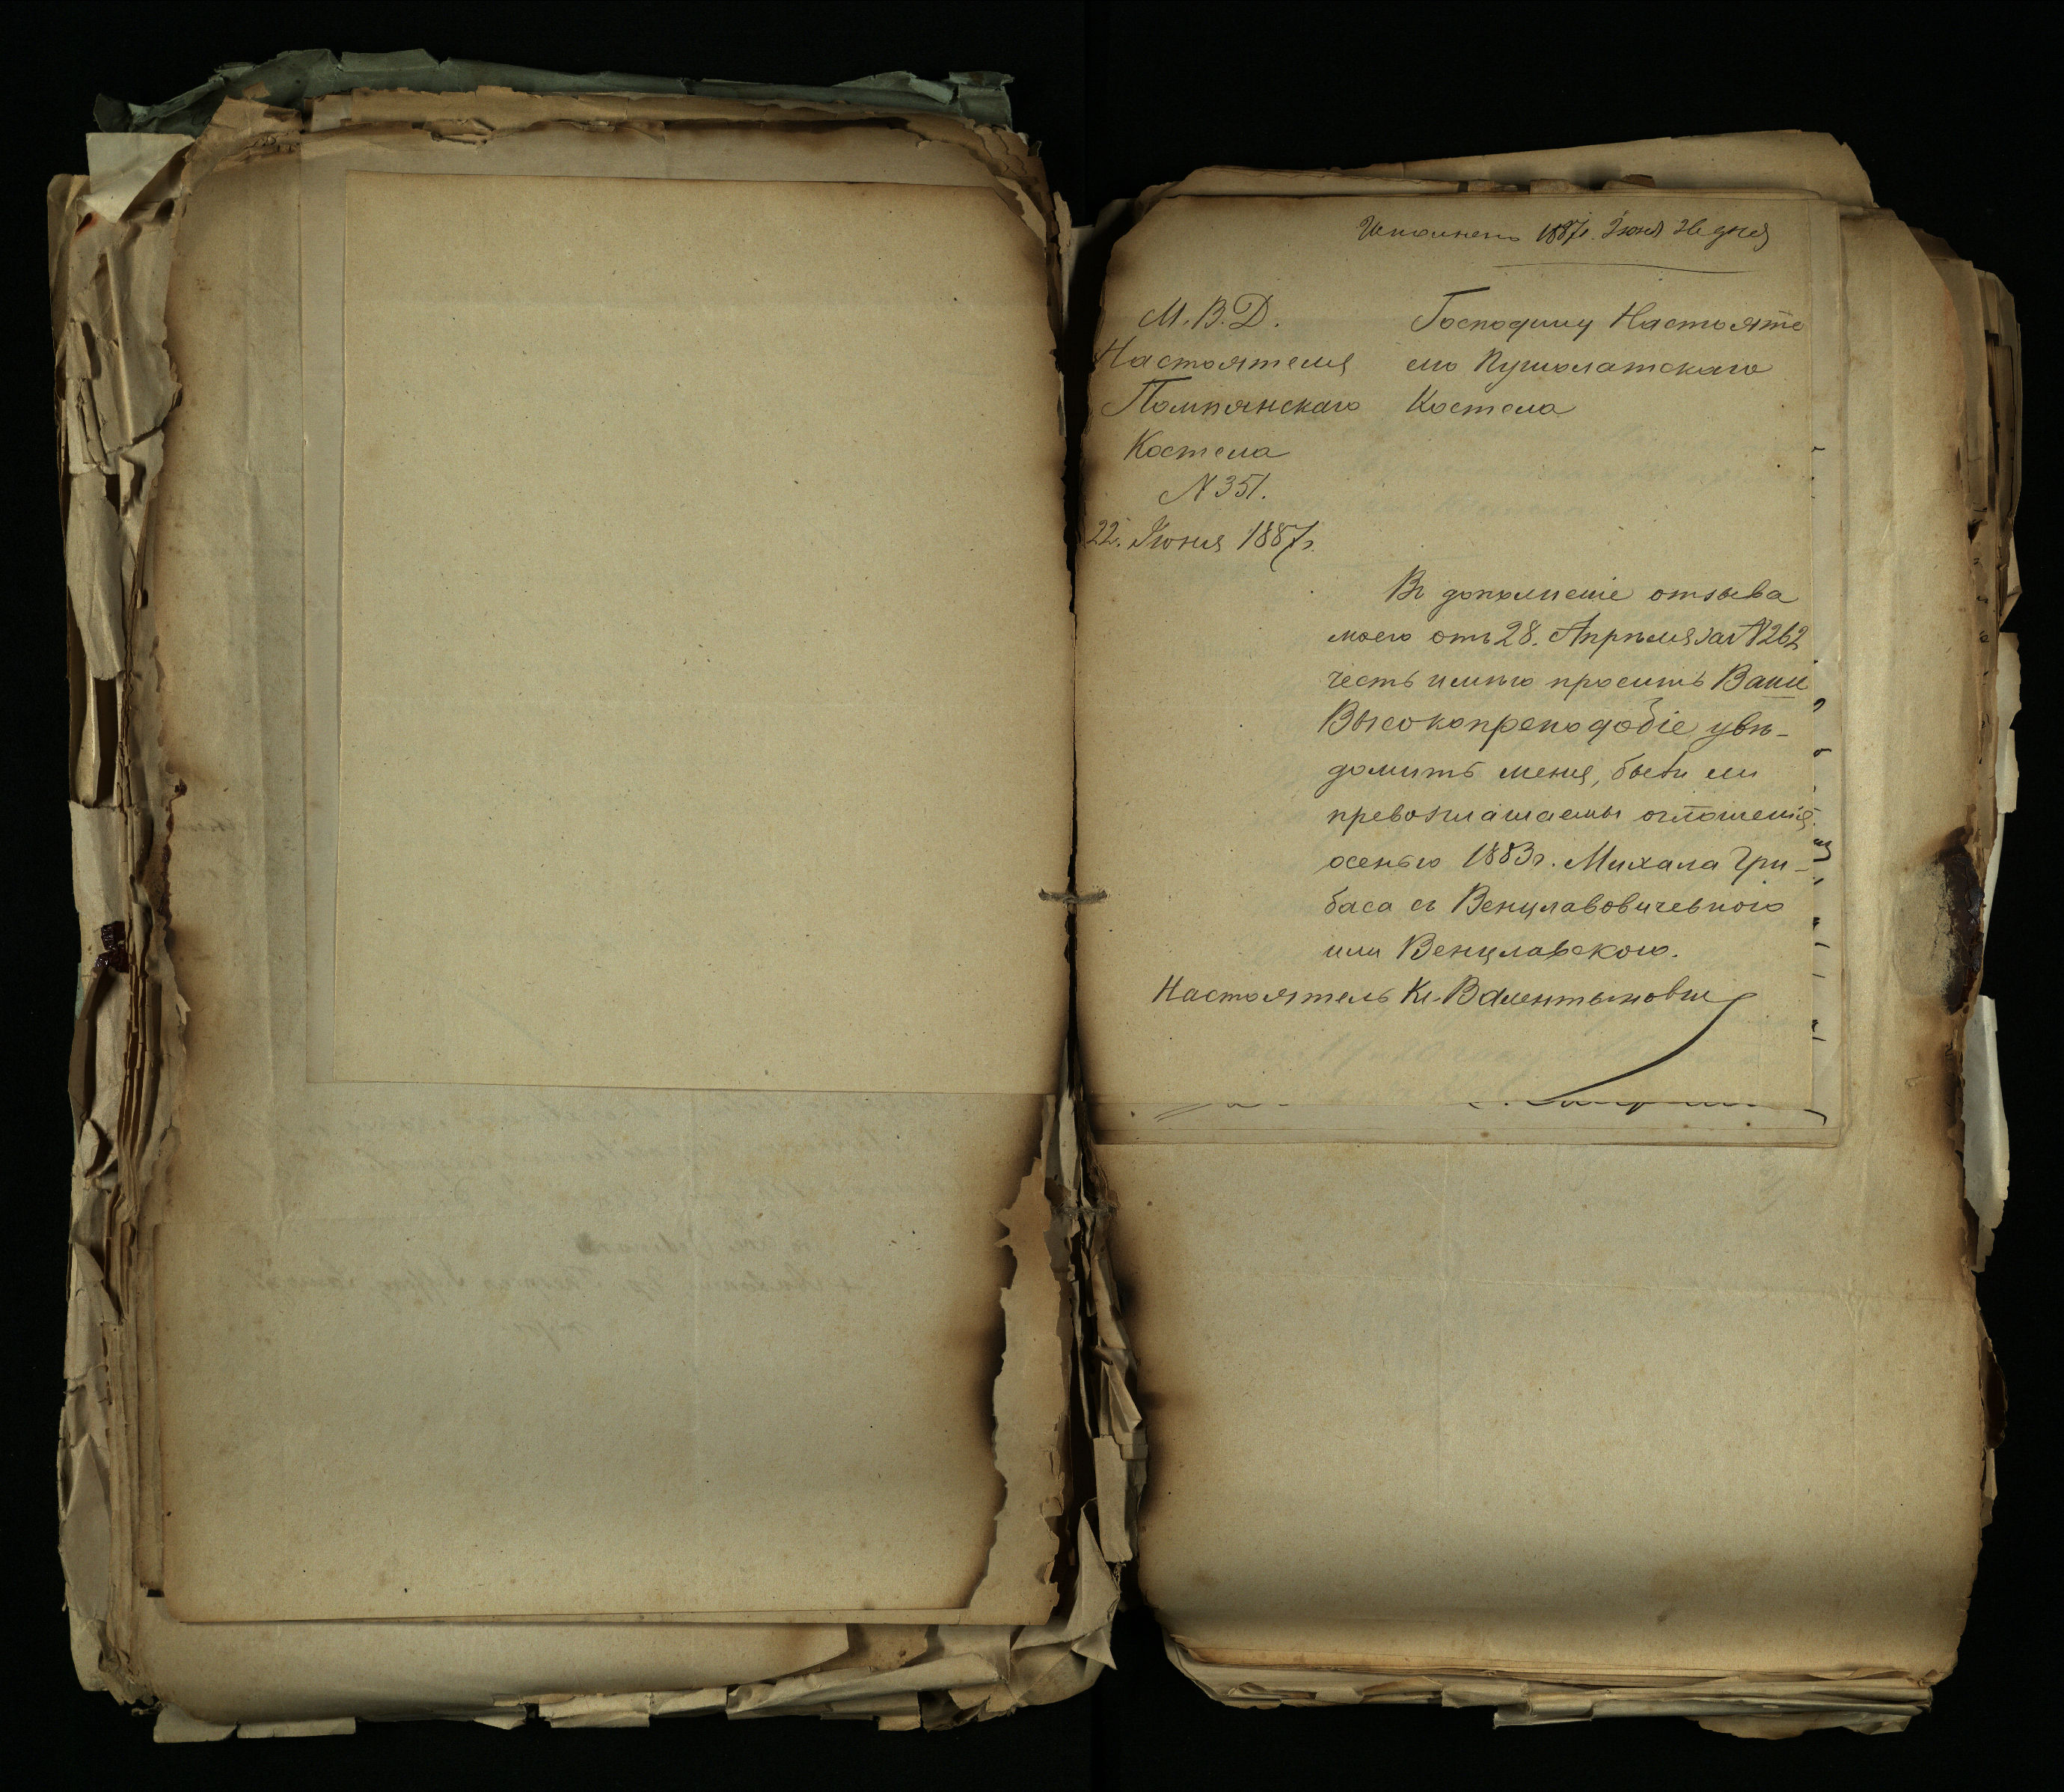 Исполнено 1887г. Іюня 26 дня
М. В. Д.
Настоятеля
Помпянскаго
Костела
N 351.
22. Іюня 1887г.
Господину Настояте
лю Пушолатскаго
Костела
Въ дополненіе отзыва
моего отъ 28. Апрѣля за N262
честь имѣю просить Ваше
Высокопреподобіе увѣ-
домить меня, были ли
превозглашаемы оглашенія
осенью 1883г. Михала Гри-
баса съ Венцлавовичевною
или Венцлавскою.
Настоятель Кс. Валентынович